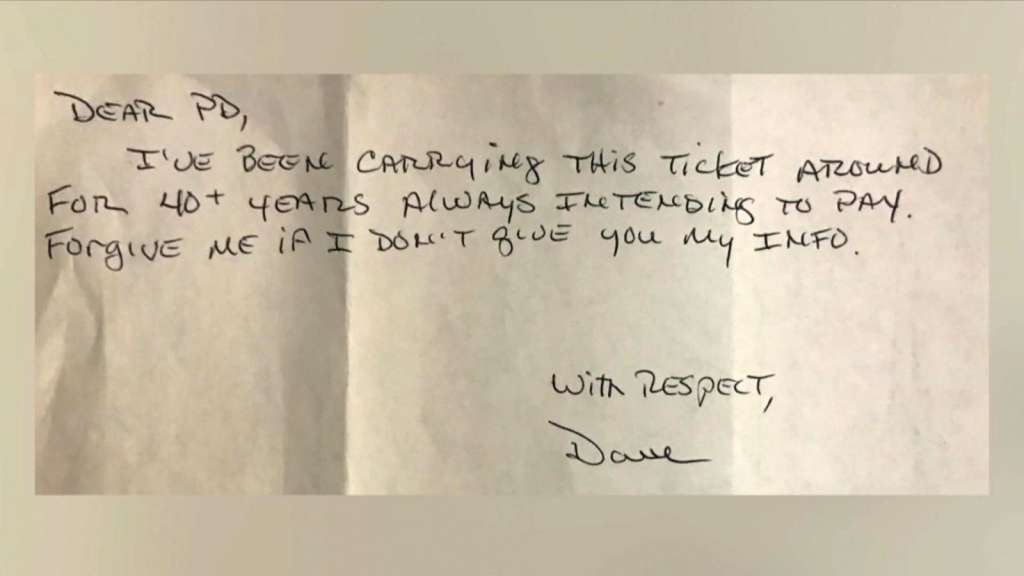 DEAR PD,
I'VE BEEN CARRYING THIS TICKET AROUND
FOR 40+ YEARS ALWAYS INTENDING TO PAY.
FORGIVE ME IF I DON'T GIVE YOU MY INFO.
WITH RESPECT,
Dave